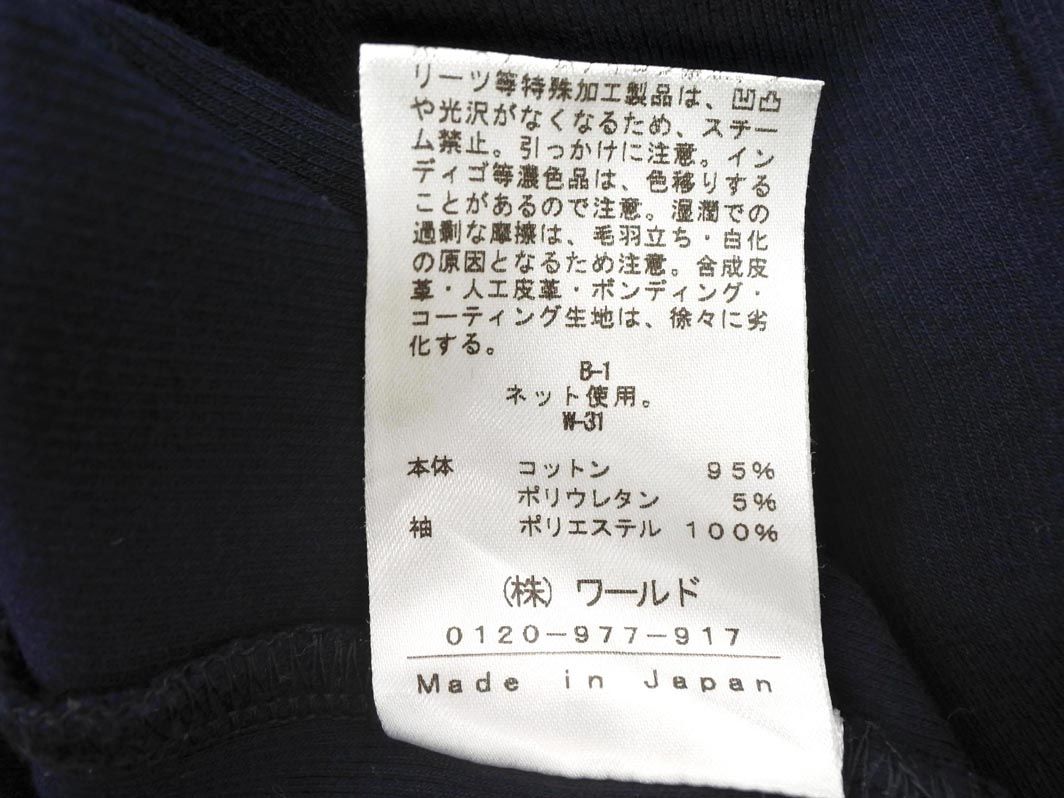 リーツ等特殊加工製品は、凹凸
や光沢がなくなるため、スチー
ム禁止。引っかけに注意。イン
ディゴ等濃色品は、色移りする
ことがあるので注意。湿潤での
過剰な摩擦は、毛羽立ち・白化
の原因となるため注意。合成皮
革・人工皮革・ボンディング・
コーティング生地は、徐々に劣
化する。
B-1
ネット使用。
W-31
本体 コットン 95%
ポリウレタン 5%
袖 ポリエステル 100%
(株)ワールド
0120-977-917
Made in Japan